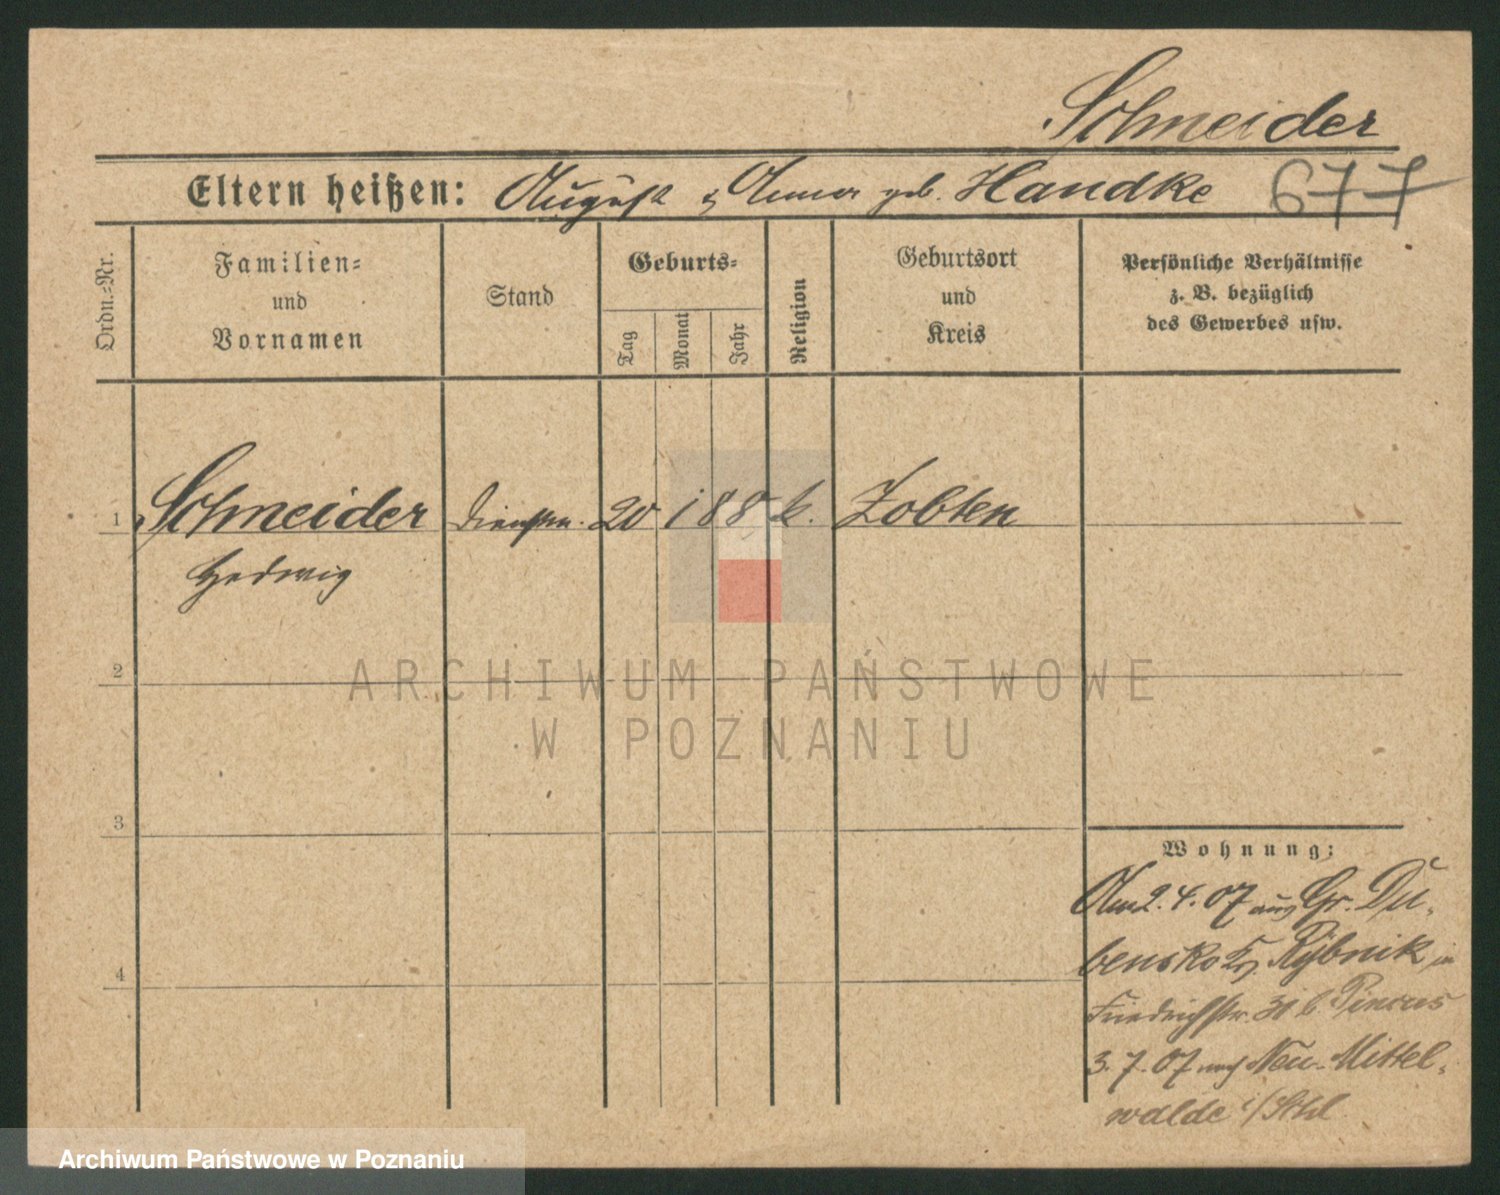 Schneider
Eltern heißen: August & Anna geb. Handke 677
Ordn.-Nr.
Familien-
und
Vornamen
Stand
Geburts-
Tag
Monat
Jahr
Religion
Geburtsort
und
Kreis
Persönliche Verhältnisse
z. B. bezüglich
des Gewerbes usw.
1 Schneider Dienstm. 20 1 88 k. Zobten
Hedwig
2
3
4
ARCHIWUM PAŃSTWOWE
W POZNANIU
Wohnung:
Am 2.4.07 aus Gr. Du-
bensko Kr. Rybnik in
Friedrichstr. 31 b. Pincus
3.7.07 nach Neu-Mittel-
walde i/Schl.
Archiwum Państwowe w Poznaniu